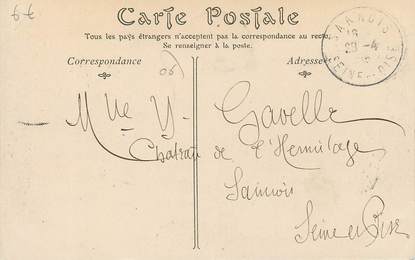 6 €
Carte Postale
Tous les pays étrangers n'acceptent pas la correspondance au recto.
Se renseigner à la poste.
Correspondance
Adresse
06
SANNOIS
SEINE-ET-OISE
Mlle Y. Gavelle
Chateau de l'Hermitage
Sannois
Seine et Oise